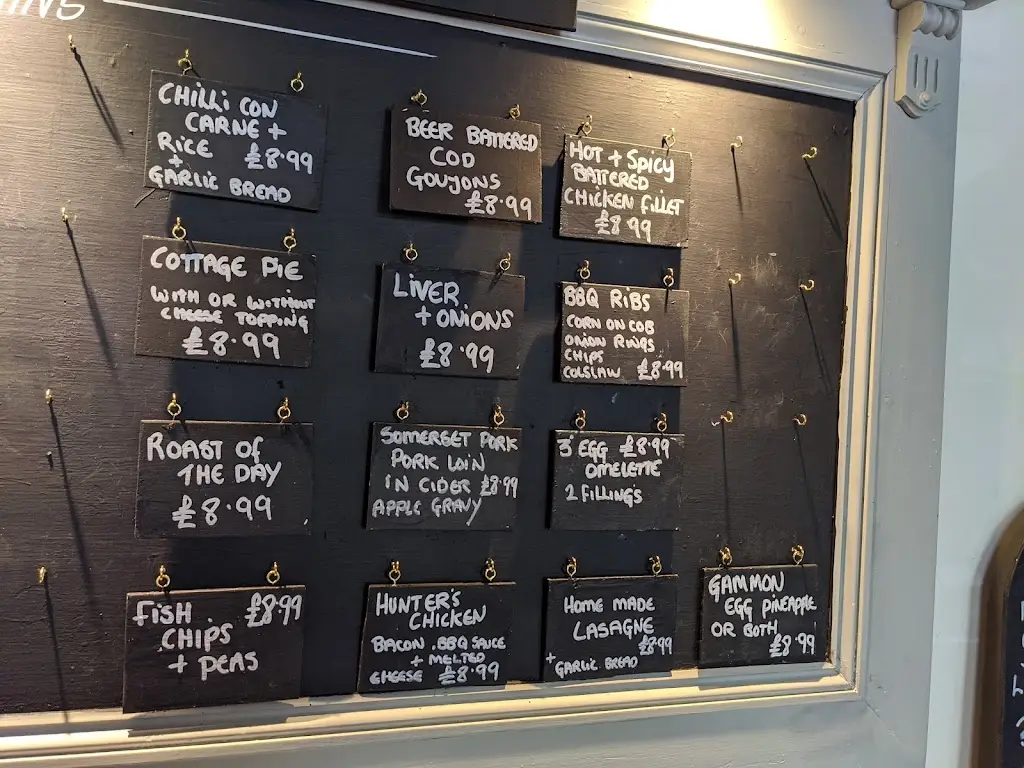 CHILLI CON
CARNE +
RICE £8.99
+
GARLIC BREAD
BEER BATTERED
COD
GOUJONS
£8.99
HOT + SPICY
BATTERED
CHICKEN FILLET
£8.99
COTTAGE PIE
WITH OR WITHOUT
CHEESE TOPPING
£8.99
LIVER
+ ONIONS
£8.99
BBQ RIBS
CORN ON COB
ONION RINGS
CHIPS
COLSLAW £8.99
ROAST OF
THE DAY
£8.99
SOMERSET PORK
PORK LOIN
IN CIDER £8.99
APPLE GRAVY
3 EGG £8.99
OMELETTE
2 FILLINGS
FISH £8.99
CHIPS
+ PEAS
HUNTER'S
CHICKEN
BACON, BBQ SAUCE
+ MELTED
CHEESE £8.99
HOME MADE
LASAGNE
£8.99
+
GARLIC BREAD
GAMMON
EGG PINEAPPLE
OR BOTH
£8.99